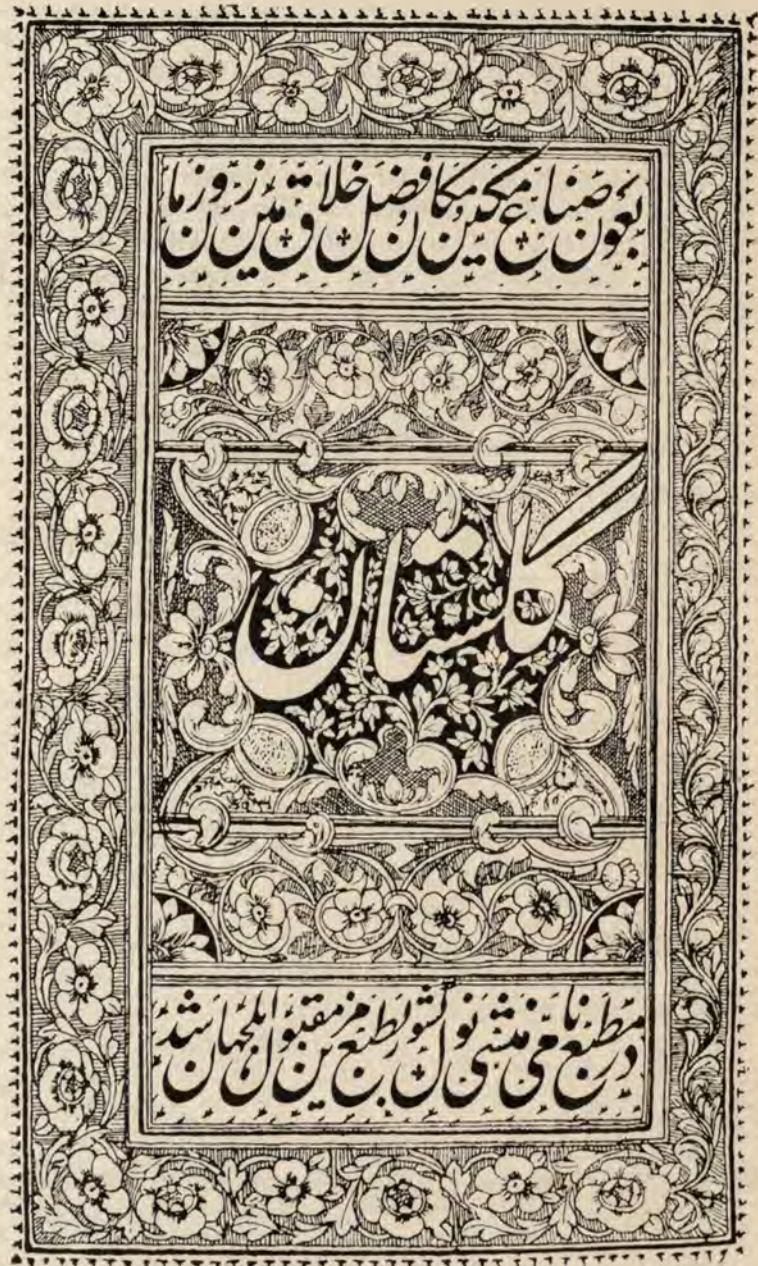 بعون صناع مکین و مکان فضل خلاق زمین و زمان
گلستان
در مطبع نامی منشی نول کشور بطبع مزین مقبول اہل جہان شد